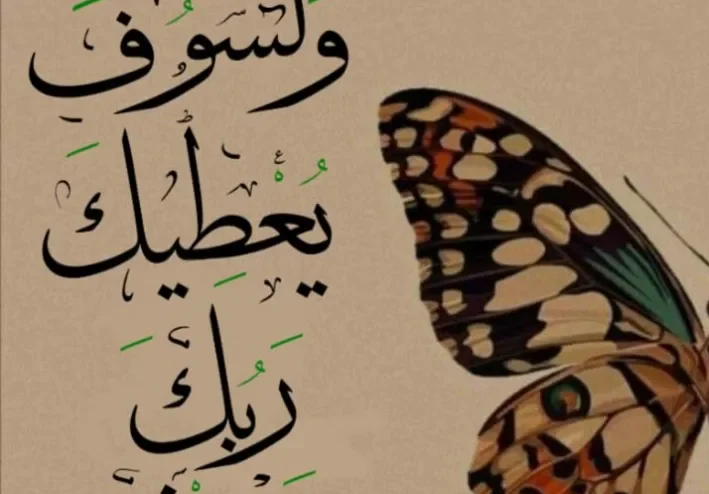 وَلَسَوُفَ
يُعْطِيكَ
رَبُكَ